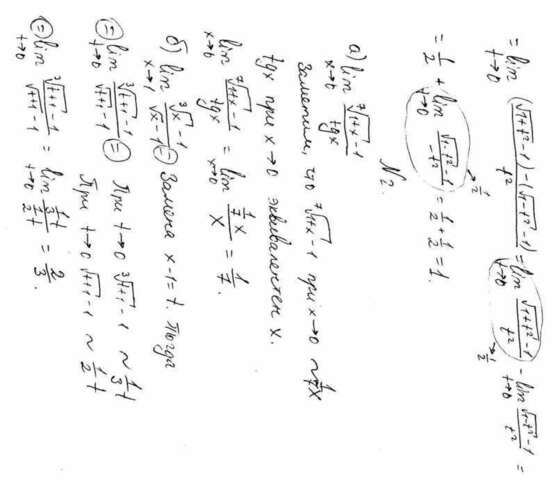 = lim t→0 ((√(1+t²) -1) - (√(1-t²) -1))/t² = lim t→0 (√(1+t²) -1)/t² →1/2 - lim t→0 (√(1-t²) -1)/t² =
= 1/2 + lim t→0 (√(1-t²) -1)/(-t²) →1/2 = 1/2 + 1/2 = 1.
N 2.
а) lim x→0 (⁷√(1+x) -1)/tgx
Заметим, что ⁷√(1+x) -1 при x→0 ~ 1/7 x
tgx при x→0 эквивалентен x.
lim x→0 (⁷√(1+x) -1)/tgx = lim x→0 (1/7 x)/x = 1/7.
б) lim x→1 (³√x -1)/(√x -1) = Замена x-1=t. Тогда
= lim t→0 (³√(t+1) -1)/(√(t+1) -1) = При t→0 ³√(t+1) -1 ~ 1/3 t
При t→0 √(t+1) -1 ~ 1/2 t
= lim t→0 (³√(t+1) -1)/(√(t+1) -1) = lim t→0 (1/3 t)/(1/2 t) = 2/3.